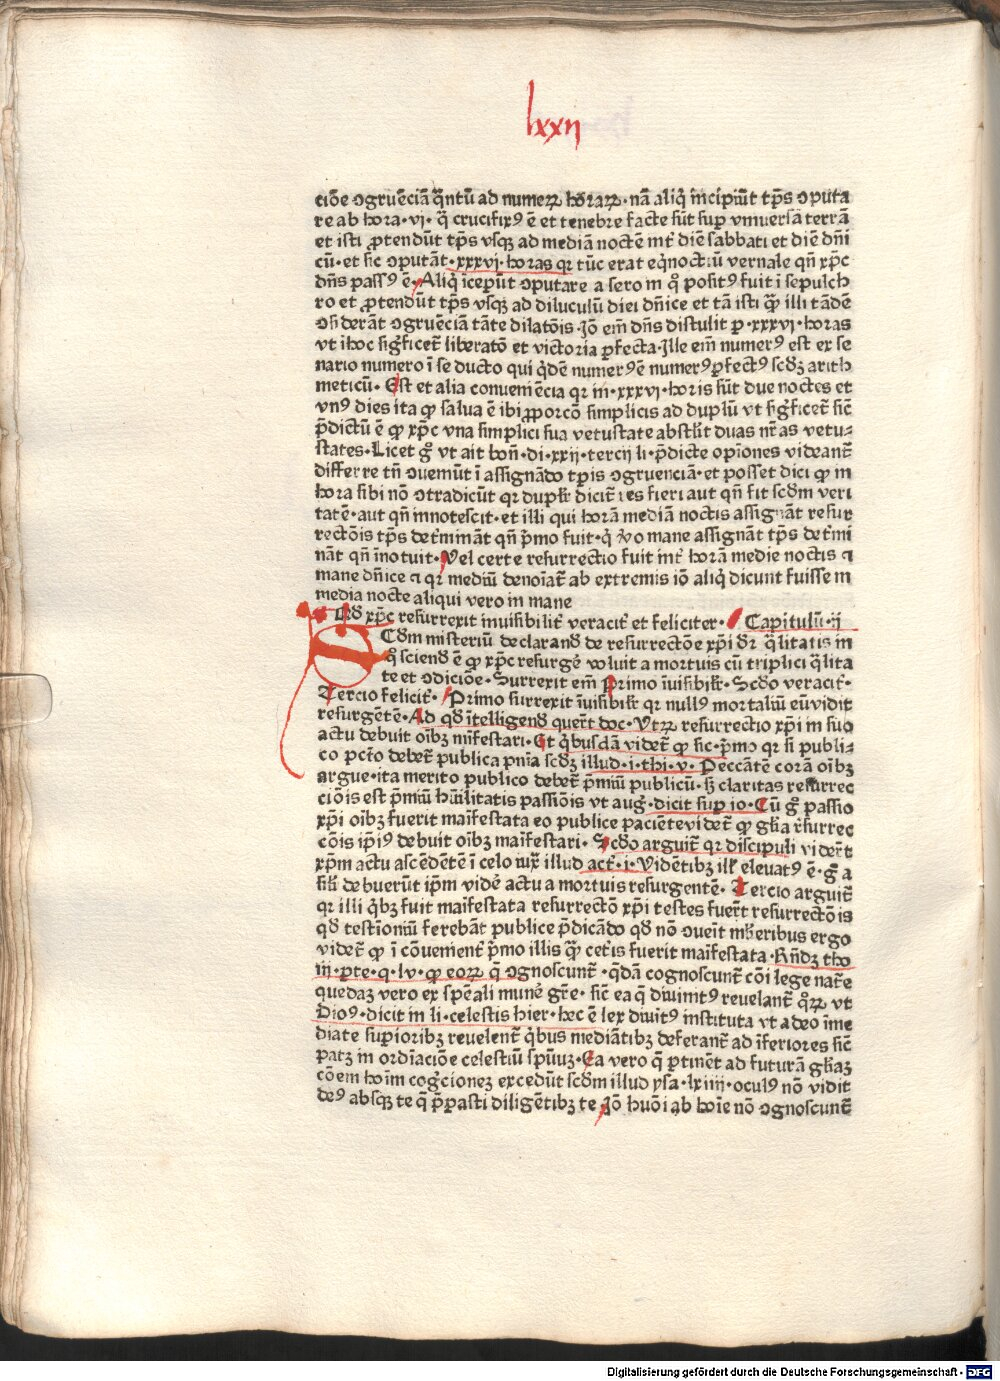 lxxij
ciōe ꝯgruēciā q̄ntū ad numeꝝ horaꝝ·nā aliq̇ incipiūt tp̄s ꝯputa
re ab hora·vi·q̄ crucifixꝰ ē et tenebre facte sūt suꝑ vniuersā terrā
et isti ꝓtendūt tp̄s vsqꝫ ad mediā noctē int̄ diē sabbati et diē dn̄i
cū·et sic ꝯputāt·xxxvj·horas qꝛ tūc erat eq̇noctiū vernale qn̄ xp̄c
dn̄s passꝰ ē·Aliq̇ īceperūt ꝯputare a sero in q̊ positꝰ fuit ī sepulch
ro et ꝓtendūt tp̄s vsqꝫ ad diluculū diei dn̄ice et tā isti qꝫ̄ illi tādē
ꝯsiderāt ꝯgruēciā tāte dilatōis·Jō em̄ dn̄s distulit ꝑ·xxxvj·horas
vt ihoc sig̊ficet̄ liberatō et victoria ꝑfecta·Jlle em̄ numerꝰ est ex se
nario numero ī se ducto qui q̇dē numerꝰ ē numerꝰ ꝑfectꝰ scd̄ꝫ arith
meticū·Est et alia conueniēcia qꝛ in·xxxvj·horis sūt due noctes et
vnꝰ dies ita ꝙ salua ē ibi ꝓporcō simplicis ad duplū vt sig̊ficet̄ sic̄
p̄dictū ē ꝙ xp̄c vna simplici sua vetustate abstl̄it duas nr̄as vetu⸗
states·Licet g̊ vt ait bon̄·di·xxij·tercij li·p̄dicte opīones videant̄
differre tn̄ ꝯueniūt ī assignādo tꝑis ꝯgruenciā·et posset dici ꝙ in
hora sibi nō ꝯtradicūt qꝛ duplr̄ dicit̄ res fieri aut qn̄ fit scd̄m veri
tatē·aut qn̄ innotescit·et illi qui horā mediā noctis assignāt resur
rectōis tp̄s det̄mināt qn̄ p̄mo fuit·q̇ v̊o mane assignāt tp̄s det̄mi
nāt qn̄ īnotuit·Vel certe resurrectio fuit int̄ horā medie noctis ⁊
mane dn̄ice ⁊ qꝛ mediū denoīat̄ ab extremis iō aliq̇ dicunt fuisse in
media nocte aliqui vero in mane
Qd̄ xp̄c resurrexit inuisibilit̄ veracit̄ et feliciter· Capitulū·ij
SCd̄m misteriū declarand̄ de resurrectōe xp̄i dr̄ q̄litatis in
q̊ sciend̄ ē ꝙ xp̄c resurgē voluit a mortuis cū triplici q̄lita
te et ꝯdiciōe·Surrexit em̄ Primo īuisibilr̄·Scd̄o veracit̄·
Tercio felicit̄·Primo surrexit īuisibilr̄ qꝛ nullꝰ mortaliū eū vidit
resurgētē·Ad qd̄ ītelligend̄ querit̄ doc·Vtꝝ resurrectio xp̄i in suo
actu debuit oībꝫ mīfestari·Et q̇busdā videt̄ ꝙ sic·p̄mo qꝛ si publi⸗
co pctō debet̄ publica pn̄ia scd̄ꝫ illud·i·thi·v·Peccātē corā oībꝫ
argue·ita merito publico debet̄ p̄miū publicū·sꝫ claritas resurrec
ciōis est p̄miū hūilitatis passiōis vt aug̊·dicit suꝑ io·Cū g̊ passio
xp̄i oībꝫ fuerit maīfestata eo publice paciēte videt̄ ꝙ gl̄ia r̄surrec
cōis ip̄iꝰ debuit oībꝫ maīfestari·Scd̄o arguit̄ qꝛ discipuli viderūt
xp̄m actu ascēdētē ī celo iux̄ illud act̄·i·Vidētibꝫ ill̄ eleuatꝰ ē·g̊ a
sil̄i debuerūt ip̄m videē actu a mortuis resurgentē·Tercio arguit̄
qꝛ illi q̇bꝫ fuit maīfestata resurrectō xp̄i testes fuer̄t resurrectōis
qd̄ testioniū ferebāt publice p̄dicādo qd̄ nō ꝯueīt ml̄ieribus ergo
videt̄ ꝙ ī cōuenient̄ p̄mo illis qꝫ̄ cet̄is fuerit maīfestata·Rn̄dꝫ tho
iij·ꝑte·q·lv·ꝙ eoꝝ q̄ ꝯgnoscunt̄·q̄dā cognoscunt̄ cōi lege nat̄e
quedaꝫ vero ex spēali munē gr̄e·sic̄ ea q̄ diuinitꝰ reuelant̄ q̊ꝝ vt
Dioꝰ·dicit in li·celestis hier·hec ē lex diuitꝰ instituta vt a deo īme
diate suꝑioribꝫ reuelent̄ q̇bus mediātibꝫ deferant̄ ad īferiores sic̄
patꝫ in ordīaciōe celestiū spūuꝫ·Ea vero q̄ ꝑtinēt ad futurā gl̄iaꝫ
cōem hoīm cog̊cionē excedūt scd̄m illud ysa·lxiiij·oculꝰ nō vidit
deꝰ absqꝫ te q̄ p̄parasti diligētibꝫ te·Jō huōi ab hoīe nō ꝯgnoscunt̄
Digitalisierung gefördert durch die Deutsche Forschungsgemeinschaft - DFG